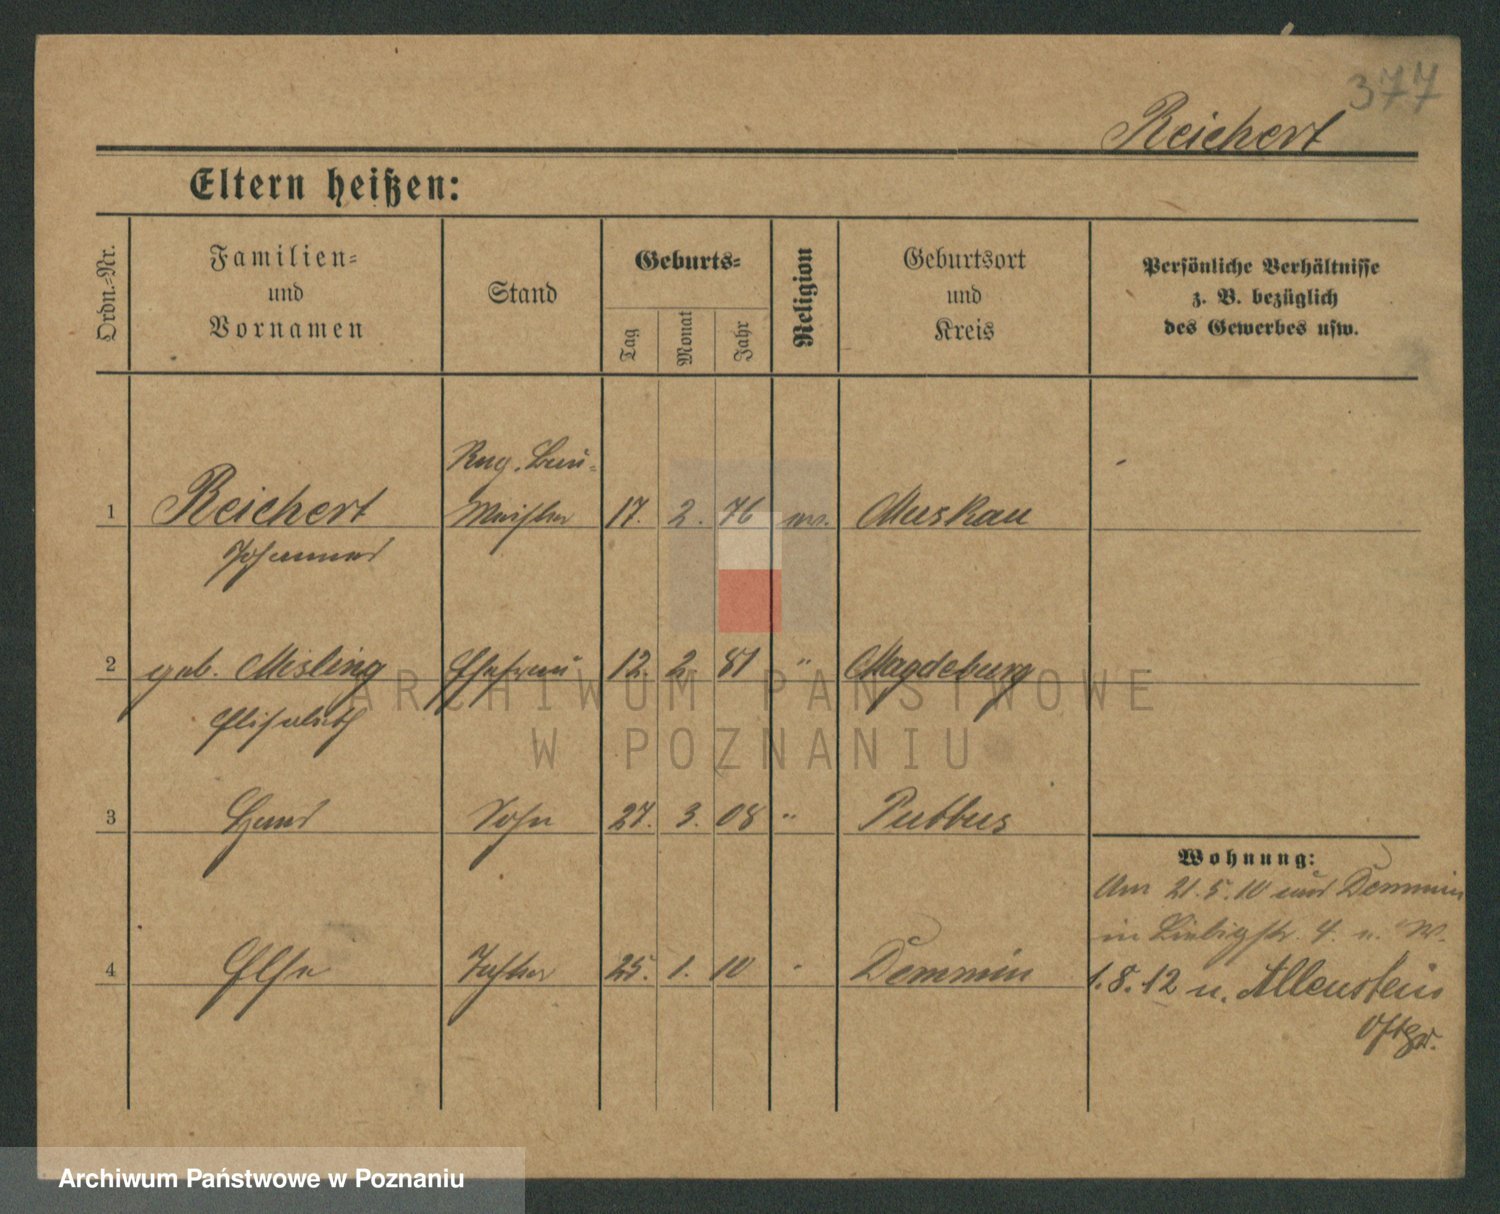 377
Reichert
Eltern heißen:
Ordn.-Nr.
Familien-
und
Vornamen
Stand
Geburts-
Tag
Monat
Jahr
Religion
Geburtsort
und
Kreis
Persönliche Verhältnisse
z. B. bezüglich
des Gewerbes usw.
Reg. Bau-
1 Reichert Meister 17. 2. 76 ev. Muskau
Johannes
2 geb. Misling Ehefrau 12. 2. 81 " Magdeburg
Elisabeth
3 Hans Sohn 27. 3. 08 " Putbus
Wohnung:
Am 21.5.10 aus Demmin
in Liebigstr. 4 u. W.
4 Else Tochter 25. 1. 10 " Demmin
1.8.12 n. Allenstein
Ostpr.
ARCHIWUM PAŃSTWOWE
W POZNANIU
Archiwum Państwowe w Poznaniu